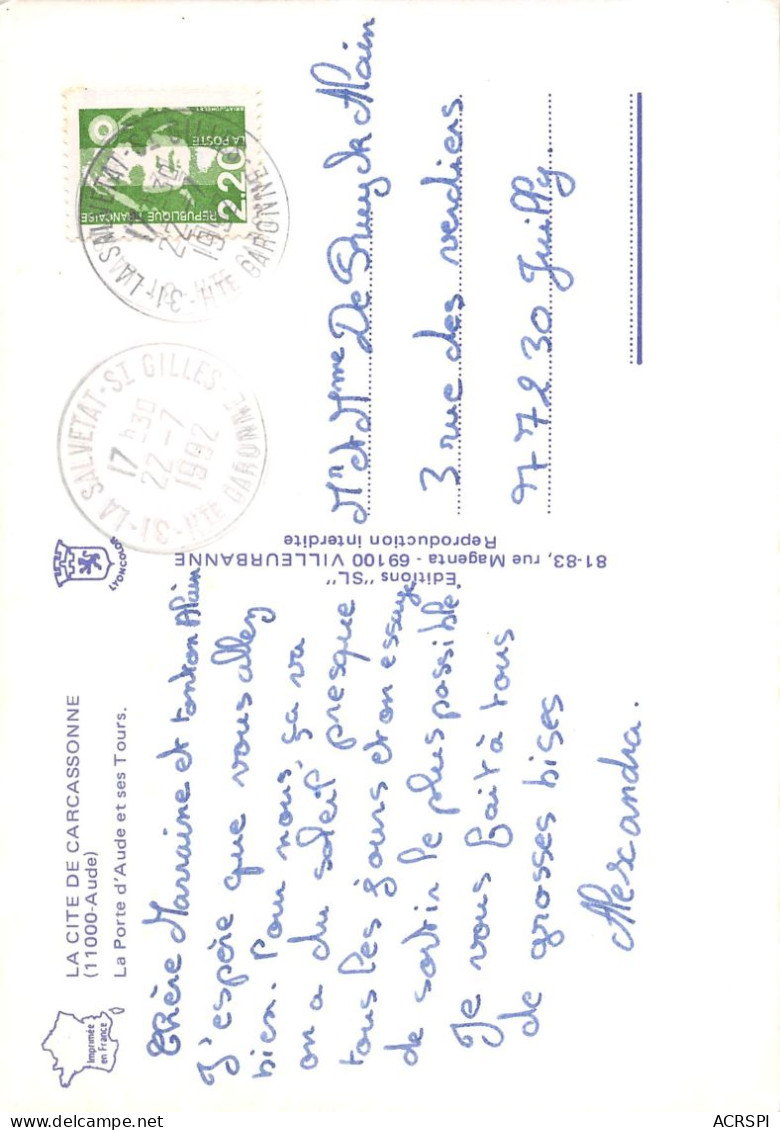 LA CITE DE CARCASSONNE
(11000-Aude)
La Porte d'Aude et ses Tours.
Imprimée
en France
LYONCOLOR
Chère Marraine et tonton Alain
J'espère que vous allez
bien. Pour nous, ça va
on a du soleil presque
tous les jours et on essaye
de sortir le plus possible
Je vous fait à tous
de grosses bises
Alexandra.
Editions "SL"
81-83, rue Magenta - 69100 VILLEURBANNE
Reproduction interdite
31-LA SALVETAT-ST GILLES-HTE GARONNE
17 h30
22-7
1992
REPUBLIQUE FRANÇAISE
2.20
LA POSTE
31-LA SALVETAT
HTE GARONNE
Mr et Mme De Alain
3 rue des verdiers
77230 Juilly
ACRSPI